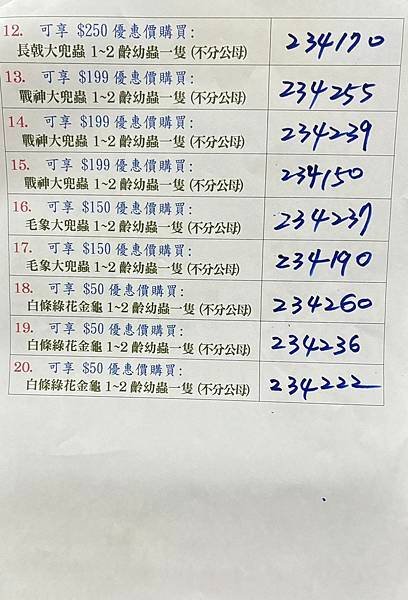 12. 可享 $250 優惠價購買:
長戟大兜蟲 1~2 齡幼蟲一隻 (不分公母)
234170
13. 可享 $199 優惠價購買:
戰神大兜蟲 1~2 齡幼蟲一隻 (不分公母)
234255
14. 可享 $199 優惠價購買:
戰神大兜蟲 1~2 齡幼蟲一隻 (不分公母)
234239
15. 可享 $199 優惠價購買:
戰神大兜蟲 1~2 齡幼蟲一隻 (不分公母)
234150
16. 可享 $150 優惠價購買:
毛象大兜蟲 1~2 齡幼蟲一隻 (不分公母)
234237
17. 可享 $150 優惠價購買:
毛象大兜蟲 1~2 齡幼蟲一隻 (不分公母)
234190
18. 可享 $50 優惠價購買:
白條綠花金龜 1~2 齡幼蟲一隻 (不分公母)
234260
19. 可享 $50 優惠價購買:
白條綠花金龜 1~2 齡幼蟲一隻 (不分公母)
234236
20. 可享 $50 優惠價購買:
白條綠花金龜 1~2 齡幼蟲一隻 (不分公母)
234222